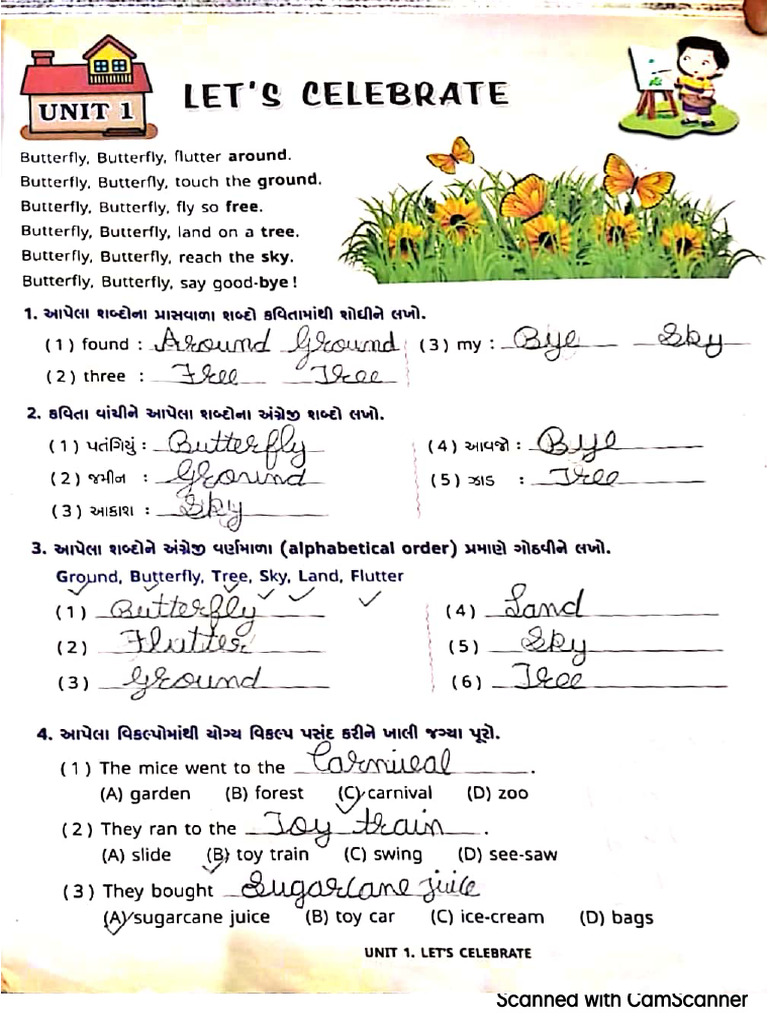 UNIT 1
LET'S CELEBRATE
Butterfly, Butterfly, flutter around.
Butterfly, Butterfly, touch the ground.
Butterfly, Butterfly, fly so free.
Butterfly, Butterfly, land on a tree.
Butterfly, Butterfly, reach the sky.
Butterfly, Butterfly, say good-bye !
1. આપેલા શબ્દોના પ્રાસવાળા શબ્દો કવિતામાંથી શોધીને લખો.
(1) found : Around Ground (3) my : Bye Sky
(2) three : Free Tree
2. કવિતા વાંચીને આપેલા શબ્દોના અંગ્રેજી શબ્દો લખો.
(1) પતંગિયું : Butterfly (4) આવજો : Bye
(2) જમીન : Ground (5) ઝાડ : Tree
(3) આકાશ : Sky
3. આપેલા શબ્દોને અંગ્રેજી વર્ણમાળા (alphabetical order) પ્રમાણે ગોઠવીને લખો.
Ground, Butterfly, Tree, Sky, Land, Flutter
(1) Butterfly (4) Land
(2) Flutter (5) Sky
(3) Ground (6) Tree
4. આપેલા વિકલ્પોમાંથી યોગ્ય વિકલ્પ પસંદ કરીને ખાલી જગ્યા પૂરો.
(1) The mice went to the Carniveal.
(A) garden (B) forest (C) carnival (D) zoo
(2) They ran to the Toy train.
(A) slide (B) toy train (C) swing (D) see-saw
(3) They bought Sugarcane juice
(A) sugarcane juice (B) toy car (C) ice-cream (D) bags
UNIT 1. LET'S CELEBRATE
Scanned with CamScanner